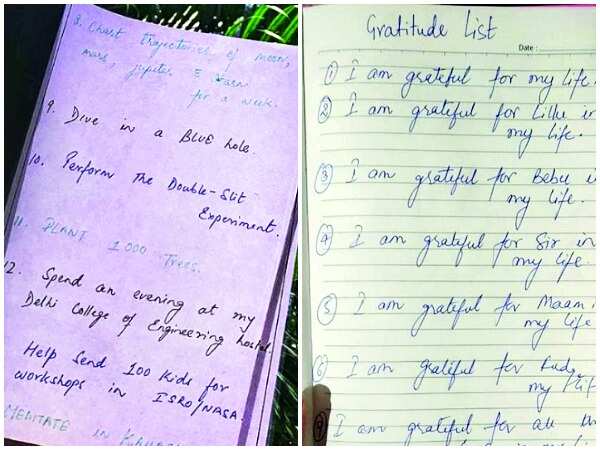 8. Chart Trajectories of Moon,
Mars, Jupiter & Saturn
for a week.
9. Dive in a BLUE hole.
10. Perform The Double-Slit
Experiment.
11. PLANT 1000 Trees.
12. Spend an evening at my
Delhi College of Engineering hostel.
Help Send 100 Kids for
workshops in ISRO/NASA.
MEDITATE in
Gratitude List
Date :
1 I am grateful for my life.
2 I am grateful for Lillu in
my life.
3 I am grateful for Bebu i
my life.
4 I am grateful for Sir in
my life.
5 I am grateful for Maam i
my life
6 I am grateful for
my lif
I am grateful for all th